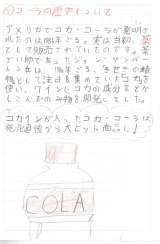 ①コーラの歴史について
アメリカでコカ・コーラが発明さ
れたのは1886年ごろ。実は当初、薬
として販売されていたのです。薬
ざい師であったジョン・ペンバー
トンは、1886年ごろ、
物として注目を集めていたコカを
使い、ワインにコカの成分をとか
しこんだのみ物を開発しました。
コカインが入ったコカ・コーラは
発売直後から大ヒット商品に!
COLA